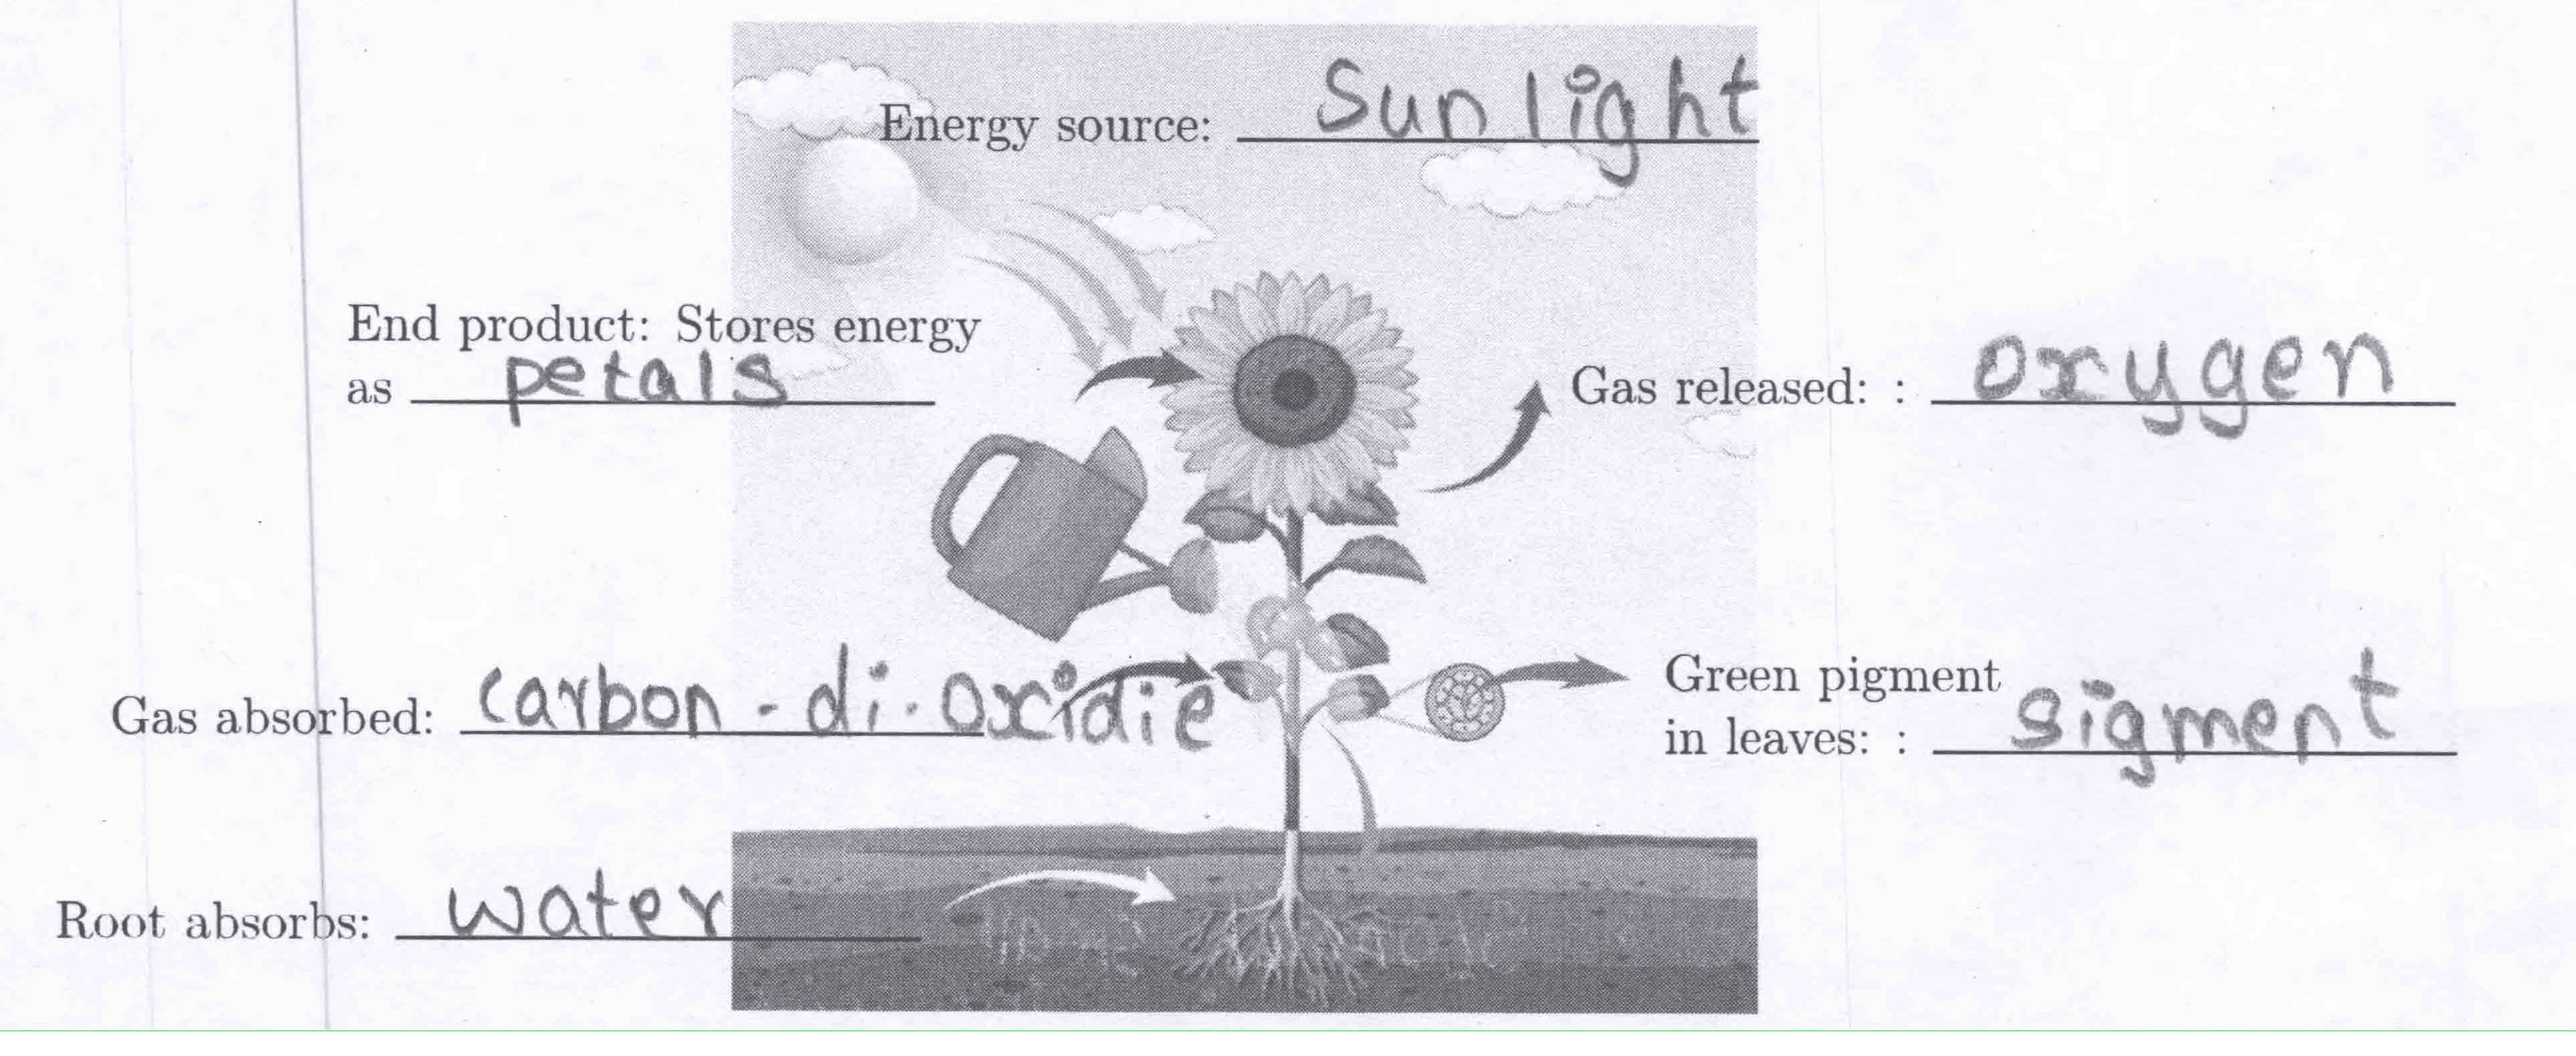 Energy source: Sunlight
End product: Stores energy
as petals
Gas released: : oxygen
Gas absorbed: carbon-di.oxidie
Green pigment
in leaves: : sigment
Root absorbs: water